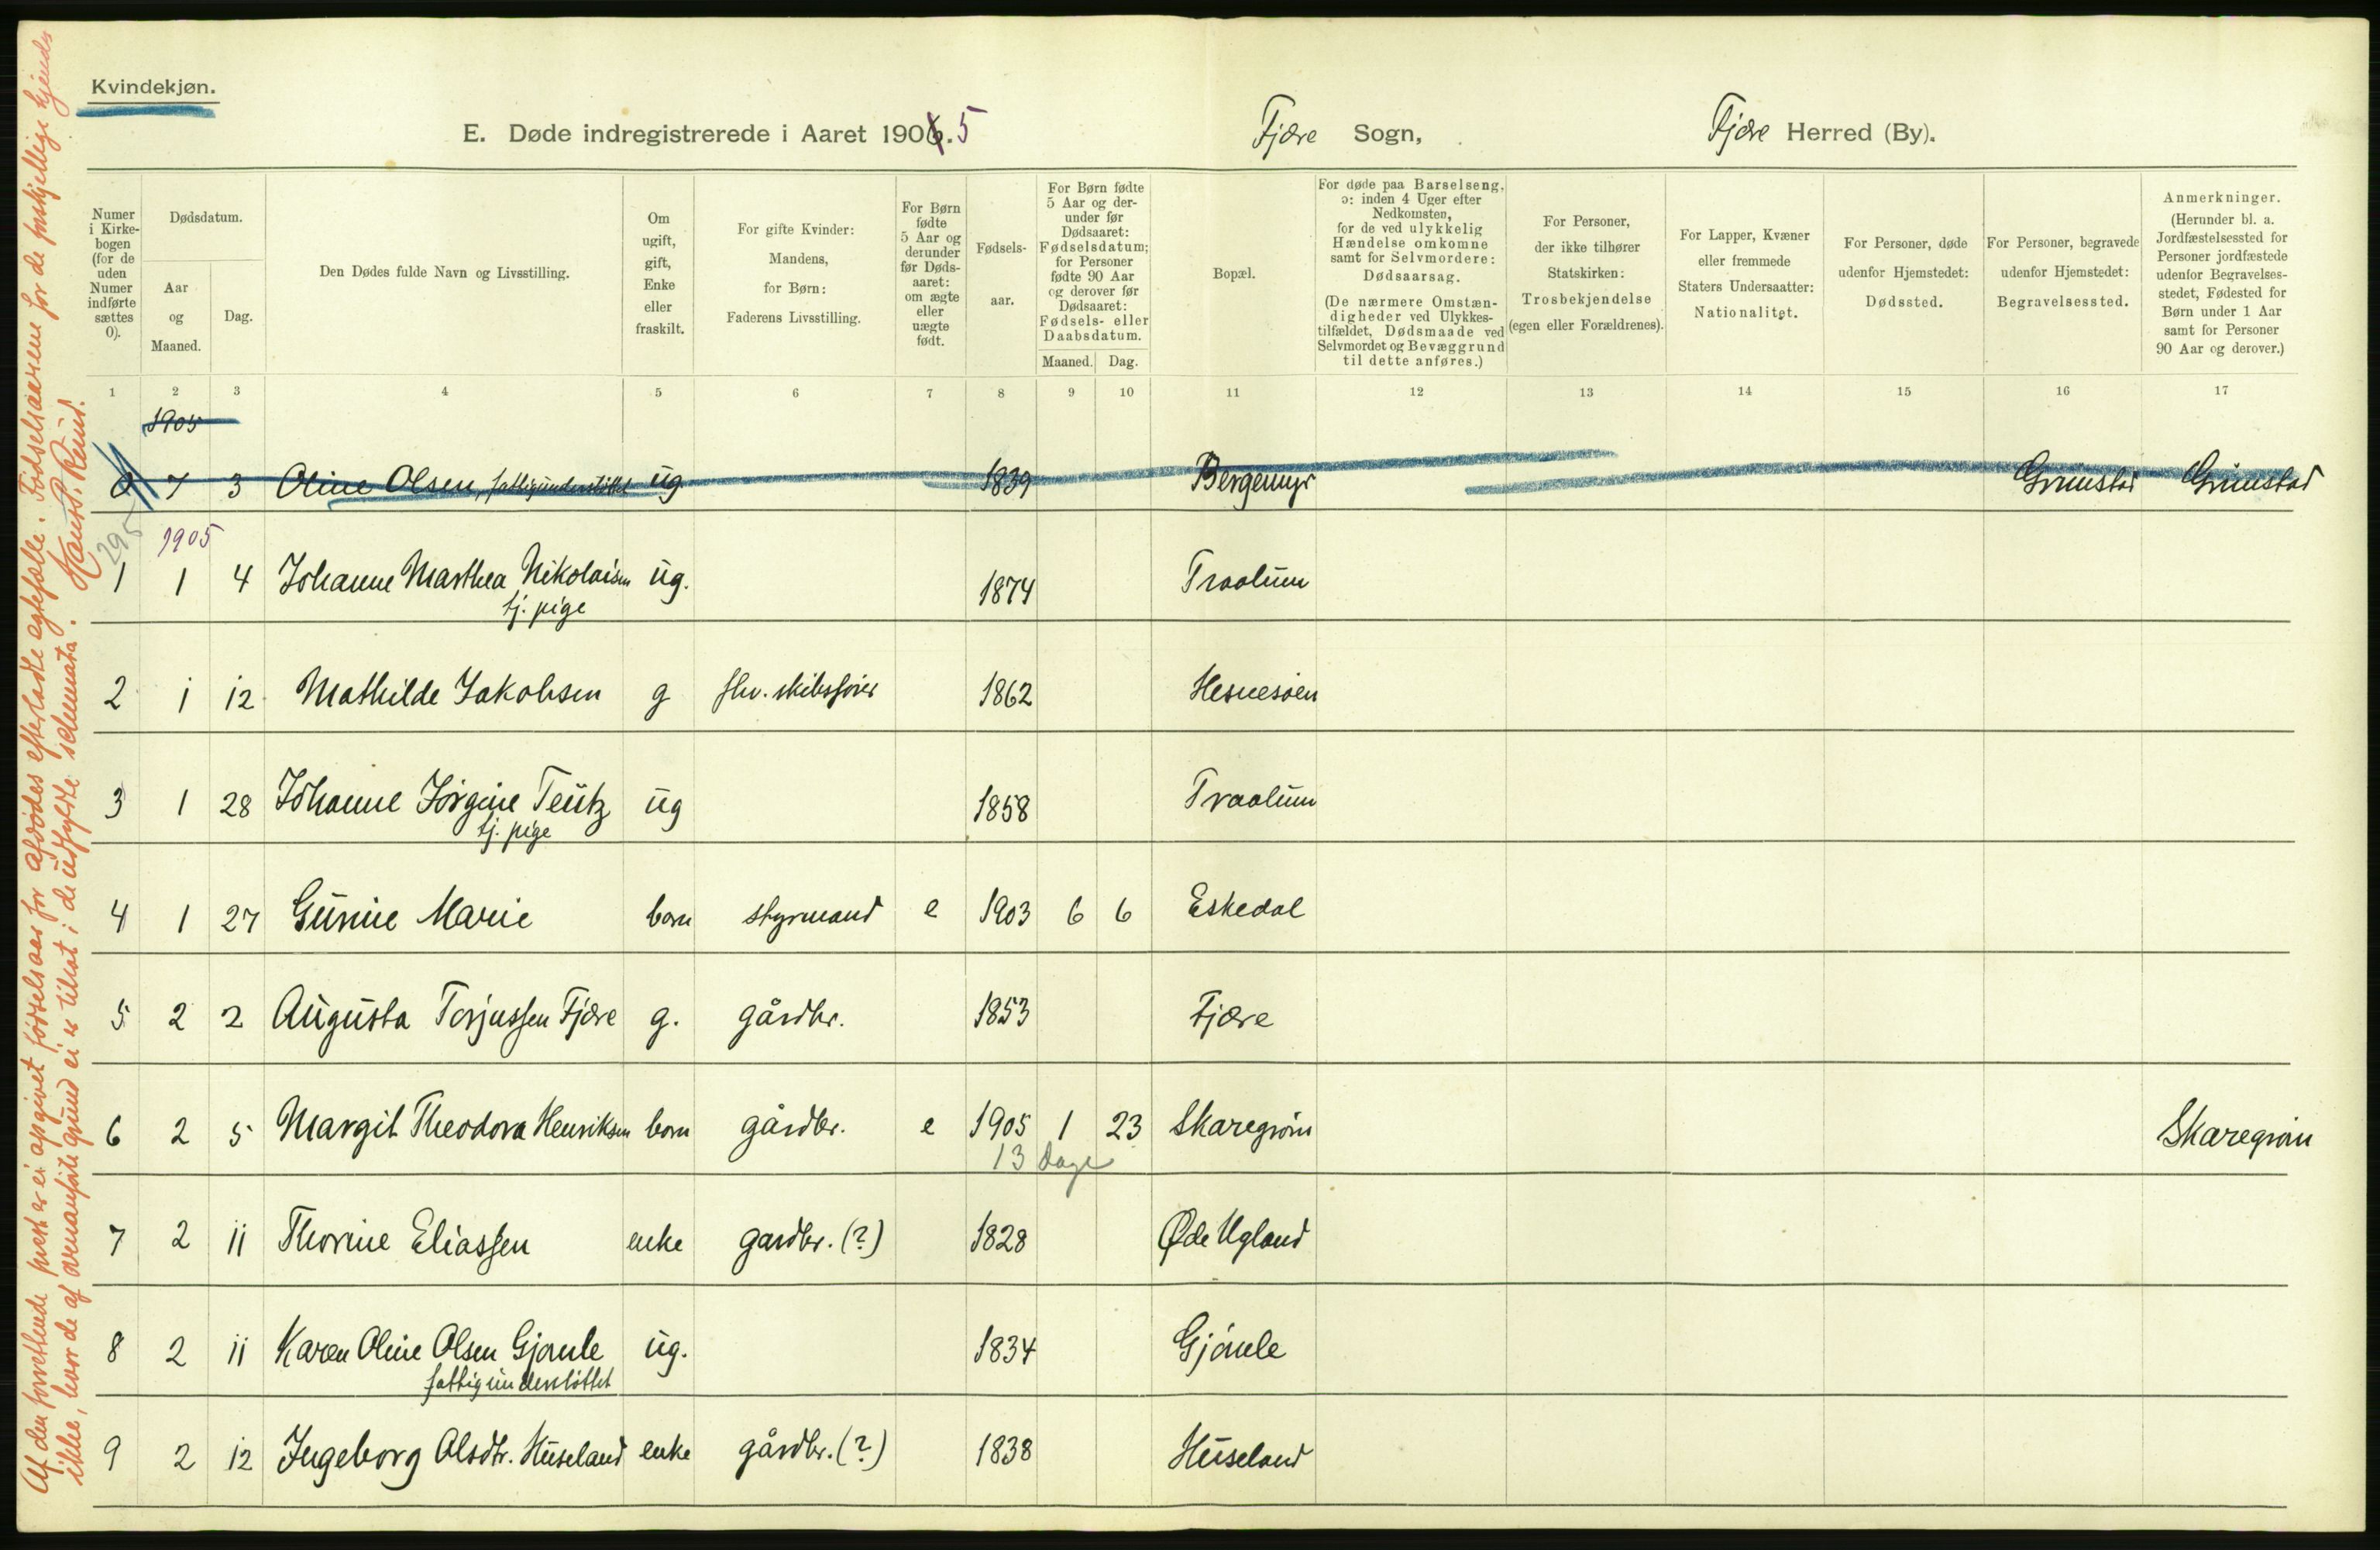 Kvindekjøn.
E. Døde indregistrerede i Aaret 1906. 5 Fjære Sogn, Fjære Herred (By).
Numer i Kirke-bogen (for de uden Numer indførte sættes 0).
Dødsdatum.
Aar og Maaned.
Dag.
Den Dødes fulde Navn og Livsstilling.
Om ugift, gift, Enke eller fraskilt.
For gifte Kvinder: Mandens, for Børn: Faderens Livsstilling.
For Børn fødte 5 Aar og derunder før Døds-aaret: om ægte eller uægte født.
Fødsels-aar.
For Børn fødte 5 Aar og der-under før Dødsaaret: Fødselsdatum; for Personer fødte 90 Aar og derover før Dødsaaret: Fødsels- eller Daabsdatum.
Maaned. Dag.
Bopæl.
For døde paa Barselseng, ɔ: inden 4 Uger efter Nedkomsten, for de ved ulykkelig Hændelse omkomne samt for Selvmordere: Dødsaarsag.
(De nærmere Omstæn-digheder ved Ulykkes-tilfældet, Dødsmaade ved Selvmordet og Bevæggrund til dette anføres.)
For Personer, der ikke tilhører Statskirken: Trosbekjendelse (egen eller Forældrenes).
For Lapper, Kvæner eller fremmede Staters Undersaatter: Nationalitet.
For Personer, døde udenfor Hjemstedet: Dødssted.
For Personer, begravede udenfor Hjemstedet: Begravelsessted.
Anmerkninger. (Herunder bl. a. Jordfæstelsessted for Personer jordfæstede udenfor Begravelses-stedet, Fødested for Børn under 1 Aar samt for Personer 90 Aar og derover.)
1 2 3 4 5 6 7 8 9 10 11 12 13 14 15 16 17
1905
0 7 3 Oline Olsen, fattigunderstöttet ug 1839 Bergemyr Grimstad Grimstad
295
1905
1 1 4 Johanne Marthea Nikolaisen ug. 1874 Traalum
tj. pige
2 1 12 Mathilde Jakobsen g fhv. skibsfører 1862 Hesnesøen
3 1 28 Johanne Jörgine Teutz ug 1858 Traalum
tj. pige
4 1 27 Gunnie Marie barn styrmand e 1903 6 6 Eskedal
5 2 2 Augusta Torjussen Fjære g. gårdbr. 1853 Fjære
6 2 5 Margit Theodora Henriksen barn gårdbr. e 1905 1 23 Skaregröm Skaregröm
13 Dage
7 2 11 Thorine Eliassen enke gardbr. (?) 1828 Øde Ugland
8 2 11 Karen Oline Olsen Gjömle ug. 1834 Gjömle
fattigunderstöttet
9 2 12 Ingeborg Olsdtr. Huseland enke gårdbr. (?) 1838 Huseland
Af den forrettende prest er ei opgivet fødselsaar for afdødes efterladte egtefælle. Fødselsaarene for de forskjellige kjendes
ikke, hvor de af ovenanførte grund ei er tilført i de udfyldte schemata. Hans Reinb.